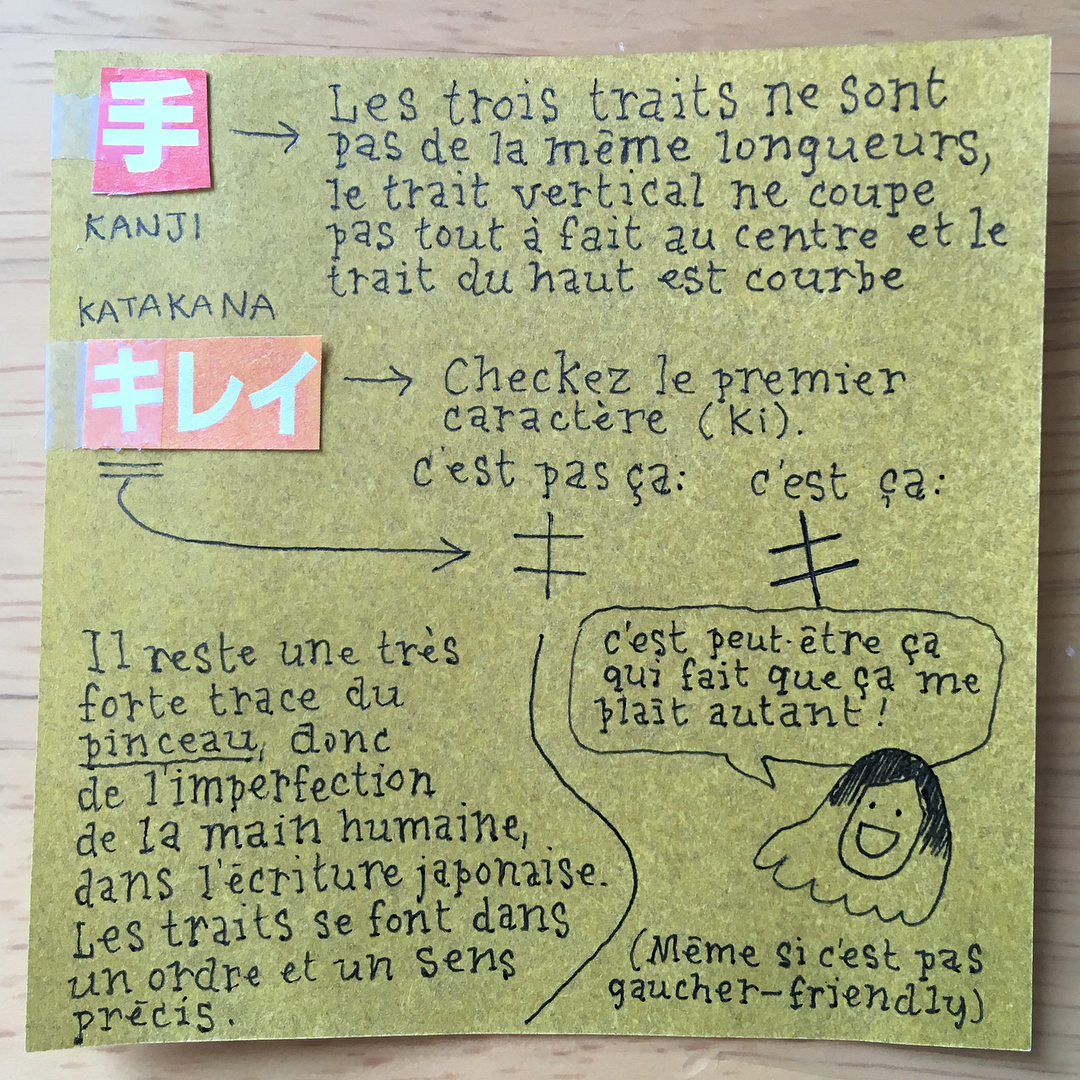 手
KANJI
Les trois traits ne sont
pas de la même longueurs,
le trait vertical ne coupe
pas tout à fait au centre et le
trait du haut est courbe
KATAKANA
キレイ
Checkez le premier
caractère (Ki).
c'est pas ça:
c'est ça:
Il reste une très
forte trace du
pinceau, donc
de l'imperfection
de la main humaine,
dans l'écriture japonaise.
Les traits se font dans
un ordre et un sens
précis.
c'est peut-être ça
qui fait que ça me
plaît autant !
(Même si c'est pas
gaucher-friendly)